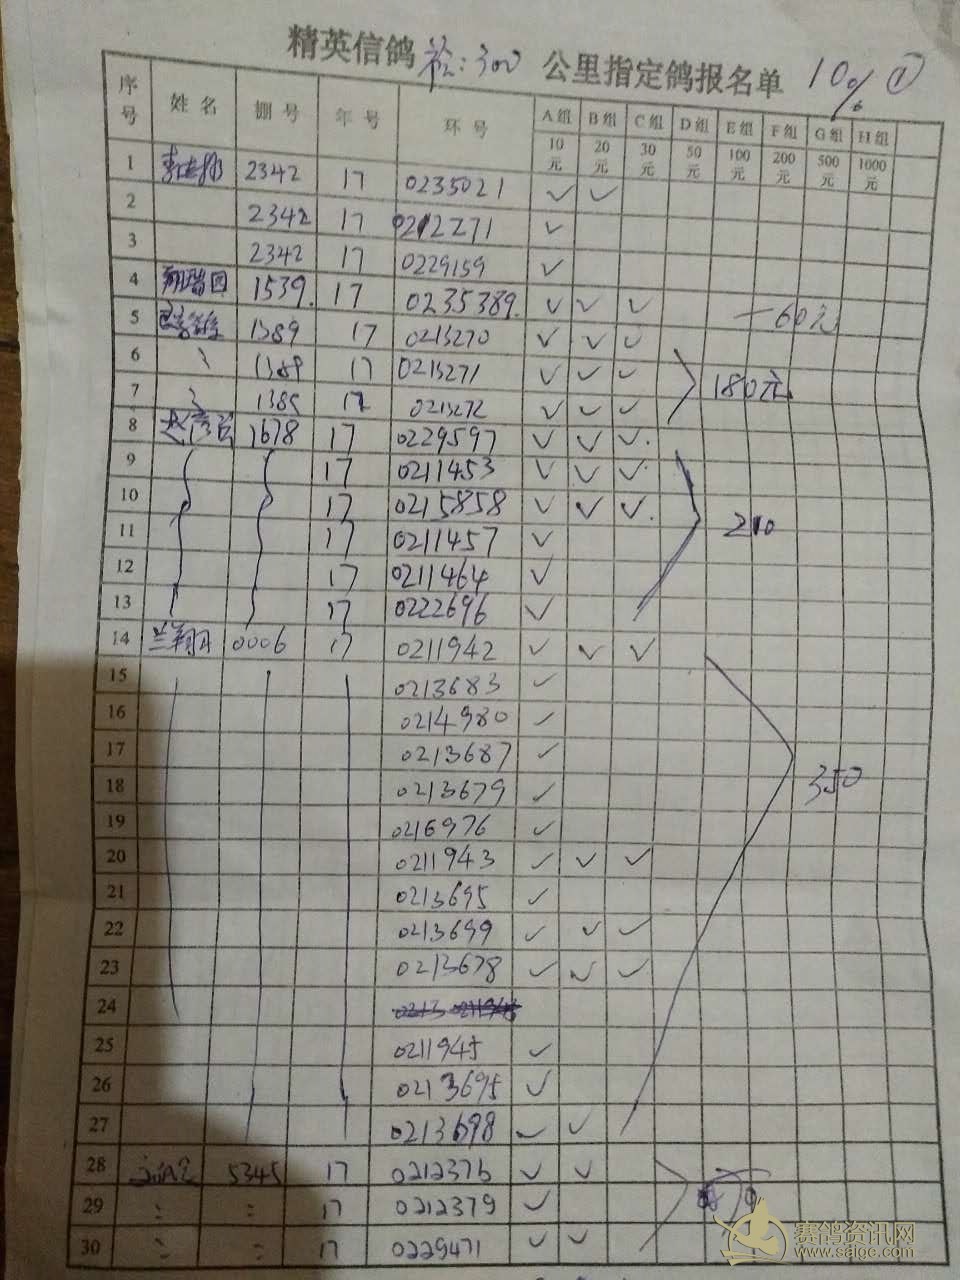 精英信鸽 : 300 公里指定鸽报名单 10% ①
序号 姓名 棚号 年号 环号 A组 B组 C组 D组 E组 F组 G组 H组
10元 20元 30元 50元 100元 200元 500元 1000元
1 2342 17 0235021 ✓ ✓
2 2342 17 0212271 ✓
3 2342 17 0229159 ✓
4 1539. 17 0235389. ✓ ✓ ✓ 60元
5 1389 17 0213270 ✓ ✓ ✓
6 1389 17 0213271 ✓ ✓ ✓ 180元
7 1385 17 0213272 ✓ ✓ ✓
8 1678 17 0229597 ✓ ✓ ✓
9 17 0211453 ✓ ✓ ✓
10 17 0215858 ✓ ✓ ✓ 210
11 17 0211457 ✓
12 17 0211464 ✓
13 17 0222696 ✓
14 兰翔 0006 17 0211942 ✓ ✓ ✓
15 0213683 ✓
16 0214980 ✓
17 0213687 ✓
18 0213679 ✓ 350
19 0216976 ✓
20 0211943 ✓ ✓ ✓
21 0213695 ✓
22 0213699 ✓ ✓ ✓
23 0213678 ✓ ✓ ✓
24
25 0211945 ✓
26 0213695 ✓
27 0213698 ✓ ✓
28 5345 17 0212376 ✓ ✓
29 17 0212379 ✓
30 17 0229471 ✓ ✓
赛鸽资讯网
www.saigc.com